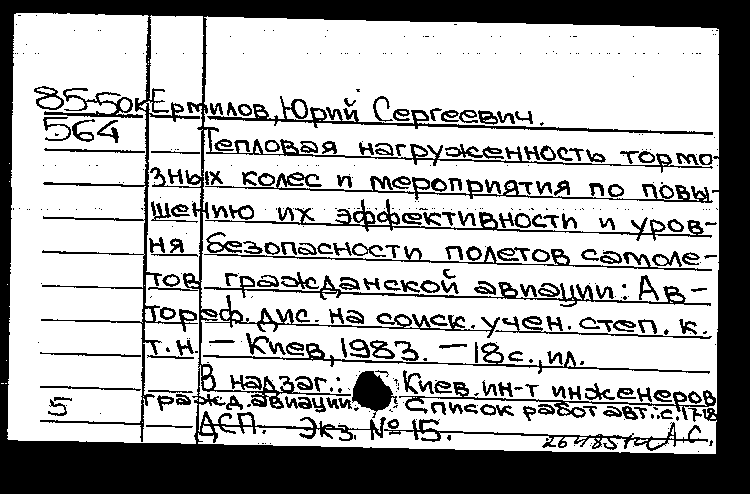 85-5ок Ермилов, Юрий Сергеевич.
564 Тепловая нагруженность тормо-
зных колес и мероприятия по повы-
шению их эффективности и уров-
ня безопасности полетов самоле-
тов гражданской авиации: Ав-
тореф. дис. на соиск. учен. степ. к.
т.н. — Киев, 1983. — 18 с., ил.
В надзаг.: Киев. ин-т инженеров
5 гражд. авиации. Список работ авт.: с. 17-18
ДСП. Экз. № 15. А.С.